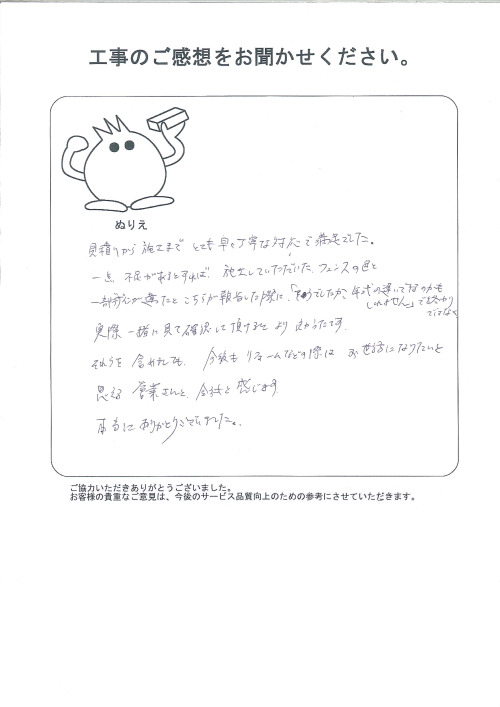 工事のご感想をお聞かせください。
ぬりえ
見積りから施工まで とても早く丁寧な対応で満足でした。
一点 不足があるとすれば、施工していただいた フェンスの色と
一部 が違ったと こちらが報告した際に、「そうでしたか、年式の違いでなのかも
しれません」で終わり
でなく
実際一緒に見て確認して頂けると より よかったです。
それらを含めても、今後も リフォームなどの際は お世話になりたいと
思える 営業さんと、会社と感じます。
本当に ありがとうございました。
ご協力いただきありがとうございました。
お客様の貴重なご意見は、今後のサービス品質向上のための参考にさせていただきます。